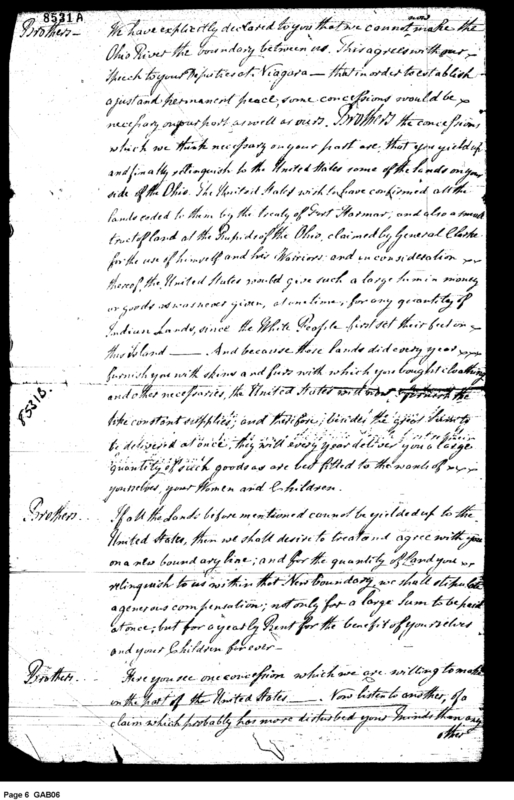 8531A
Brothers — We have explicitly declared to you that we cannot now make the
Ohio River the boundary between us. This agrees with our
Speech to your Deputies at Niagara — that in order to establish
a just and permanent peace, some concessions would be
necessary on your part, as well as ours. Brothers the concessions
which we think necessary on your part are, that you yield up
and finally relinquish to the United States some of the lands on your
side of the Ohio. The United States wish to have confirmed all the
lands ceded to them by the treaty of Fort Harmar, and also a small
tract of land at the Rapids of the Ohio, claimed by General Clarke
for the use of himself and his Warriors; and in consideration
thereof, the United States would give such a large sum in money
or goods as was never given, at one time, for any quantity of
Indian Lands, since the White People first set their feet on
this Island — And because those lands did every year
furnish you with skins and furs with which you bought cloathing
and other necessaries, the United States will now furnish the
like constant supplies; and therefore, besides the great Sum to
be delivered at once, they will every year deliver you a large
quantity of such goods as are best fitted to the wants of
yourselves, your Women and Children.
8531B.
Brothers. If all the Lands before mentioned cannot be yielded up to the
United States, then we shall desire to treat and agree with you
on a new boundary line; and for the quantity of Land you
relinquish to us within that New boundary, we shall stipulate
a generous compensation; not only for a large Sum to be paid
at once, but for a yearly Rent for the benefit of yourselves
and your Children forever —
Brothers. Here you see one concession which we are willing to make
on the part of the United States. — Now listen to another, of a
claim which probably has more disturbed your minds than any
other
Page 6 GAB06